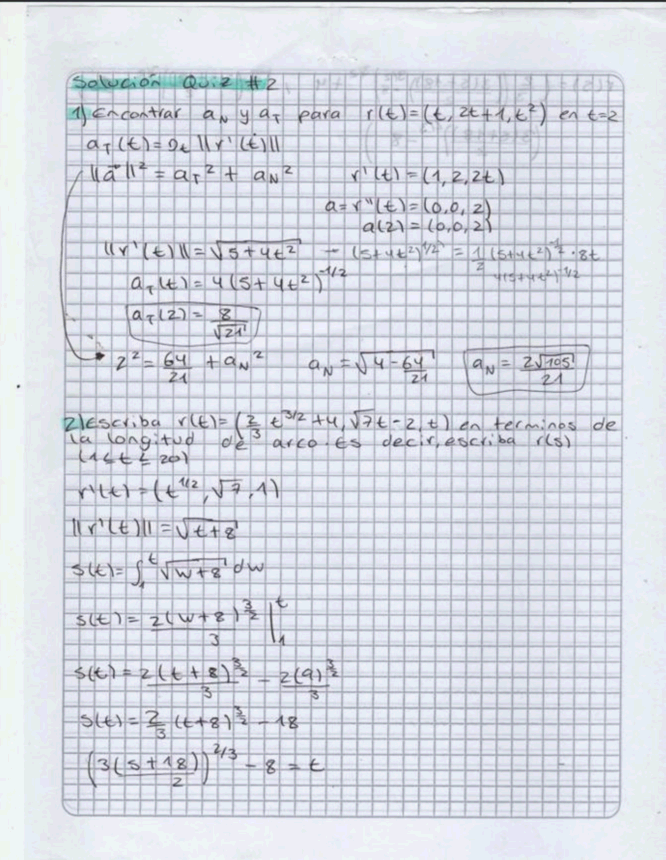 Solución Quiz #2
1) Encontrar a_N y a_T para r(t)=(t, 2t+1, t²) en t=2
a_T(t)=D_t ||r'(t)||
||a⃗||² = a_T² + a_N²
r'(t)=(1,2,2t)
a=r''(t)=(0,0,2)
a(2)=(0,0,2)
||r'(t)||=√(5+4t²) – (5+4t²)^(1/2) = 1/2 (5+4t²)^(-1/2) · 8t
4(5+4t²)^(-1/2)
a_T(t) = 4(5+4t²)^(-1/2)
a_T(2) = 8/√21
2² = 64/21 + a_N² a_N = √(4 - 64/21) a_N = 2√105/21
2) Escriba r(t)=(2/3 t^(3/2) +4, √7t-2, t) en terminos de
la longitud de arco. Es decir, escriba r(s)
(1≤t≤20)
r'(t)=(t^(1/2), √7, 1)
||r'(t)||=√(t+8)
s(t)=∫₁^t √(w+8) dw
s(t)=2(w+8)^(3/2)/3 |₁^t
s(t)=2(t+8)^(3/2)/3 - 2(9)^(3/2)/3
s(t)=2/3 (t+8)^(3/2) - 18
(3(s+18)/2)^(2/3) - 8 = t